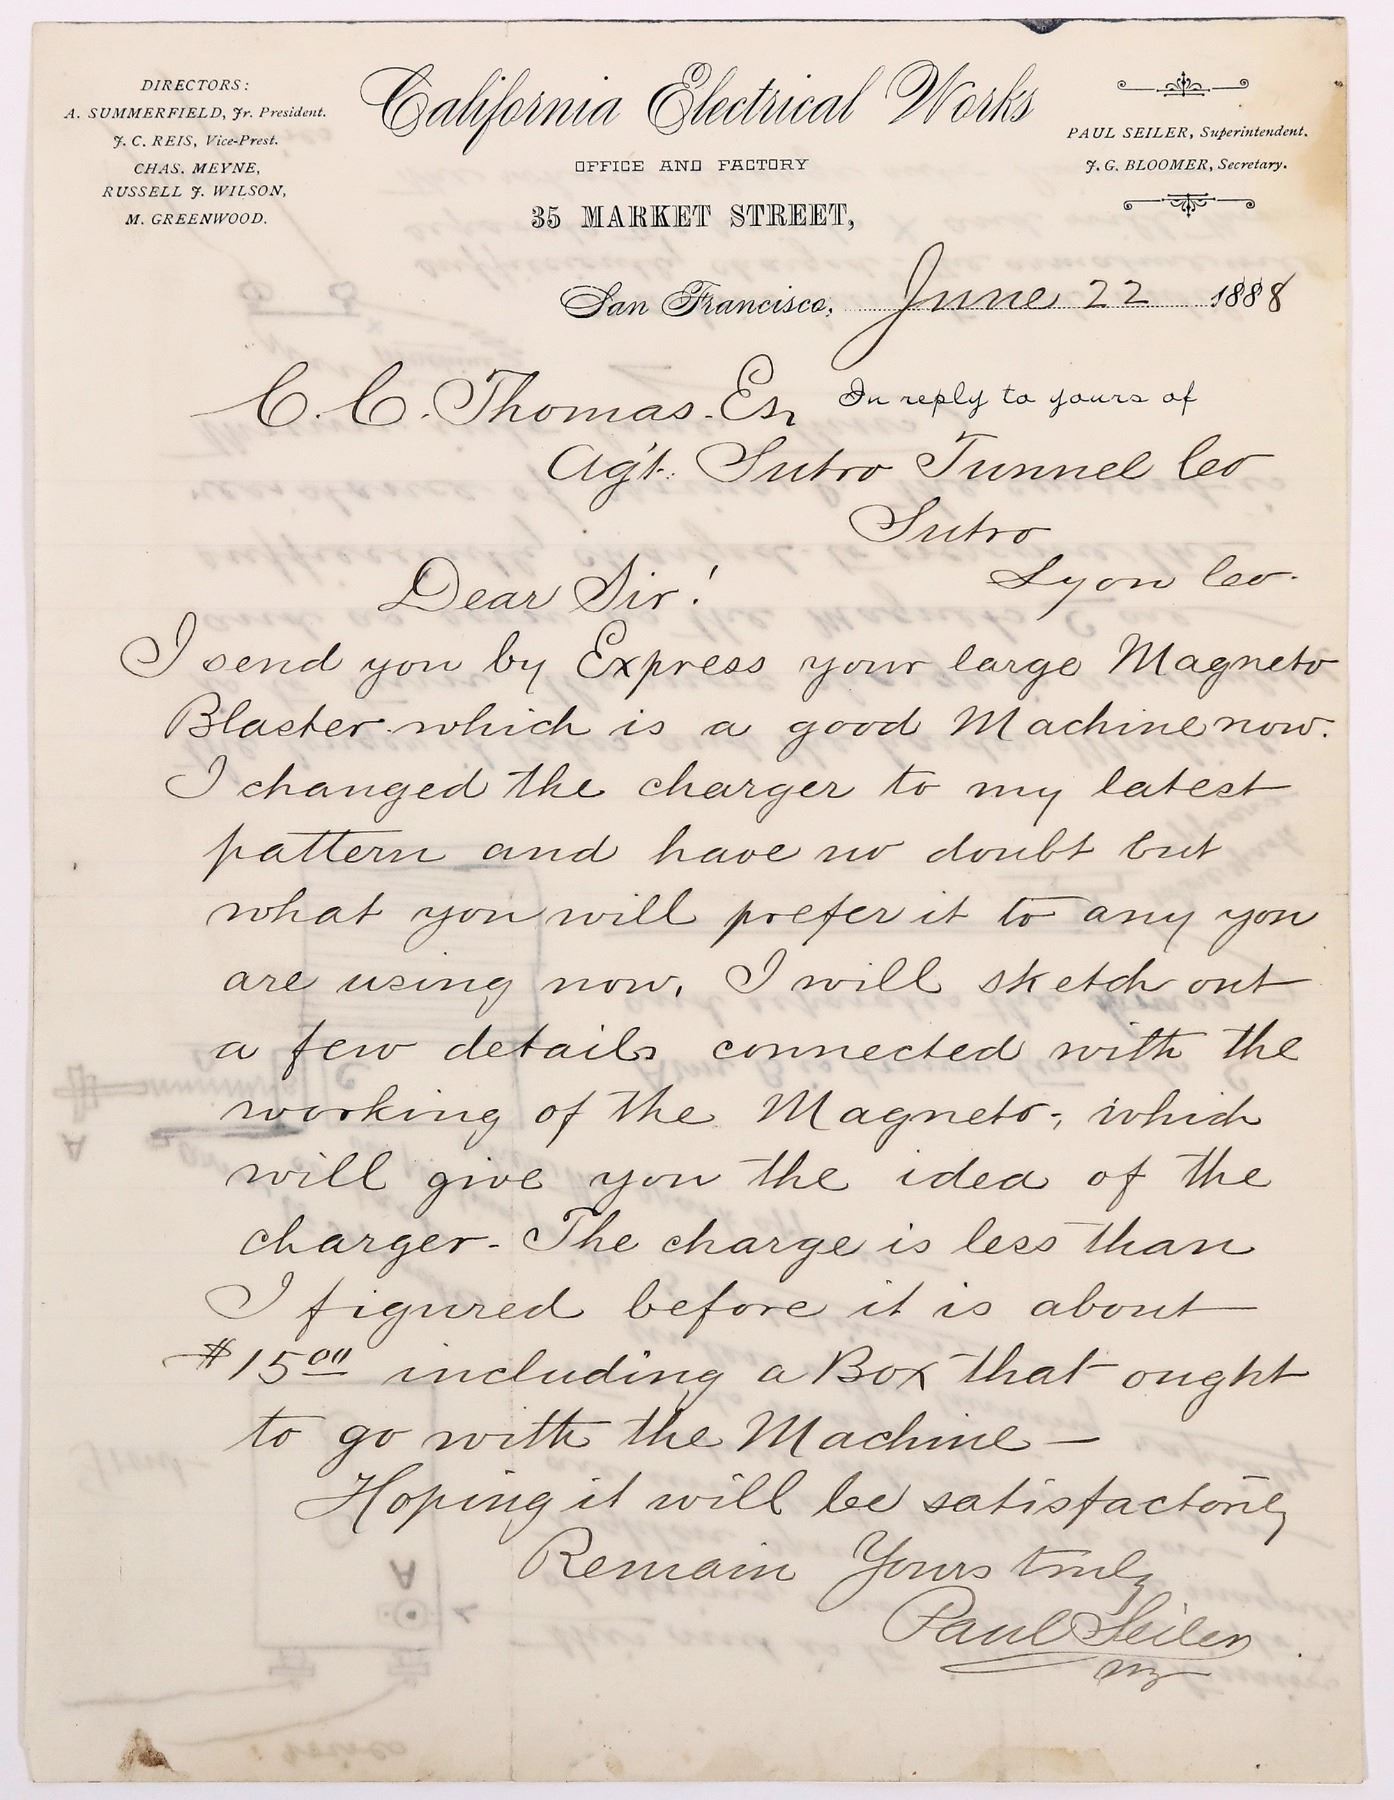 DIRECTORS:
A. SUMMERFIELD, Jr. President.
J. C. REIS, Vice-Prest.
CHAS. MEYNE,
RUSSELL J. WILSON,
M. GREENWOOD.
California Electrical Works
OFFICE AND FACTORY
35 MARKET STREET,
PAUL SEILER, Superintendent.
J. G. BLOOMER, Secretary.
San Francisco, June 22 1888
C. C. Thomas. Esq
In reply to yours of
Agt. Sutro Tunnel Co
Sutro
Lyon Co.
Dear Sir!
I send you by Express your large Magneto
Blaster which is a good Machine now.
I changed the charger to my latest
pattern and have no doubt but
what you will prefer it to any you
are using now. I will sketch out
a few details connected with the
working of the Magneto, which
will give you the idea of the
charger - The charge is less than
I figured before it is about
$15.00 including a Box that ought
to go with the Machine —
Hoping it will be satisfactorily
Remain Yours truly
Paul Seiler